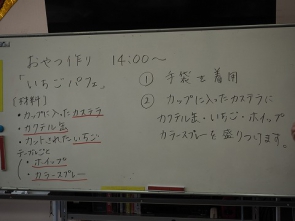 おやつ作り 14:00〜
「いちごパフェ」
[材料]
・カップに入ったカステラ
・カクテル缶
・カットされたいちご
テーブルごと
・ホイップ
・カラースプレー
① 手袋を着用
② カップに入ったカステラに
カクテル缶・いちご・ホイップ
カラースプレーを盛りつけます。